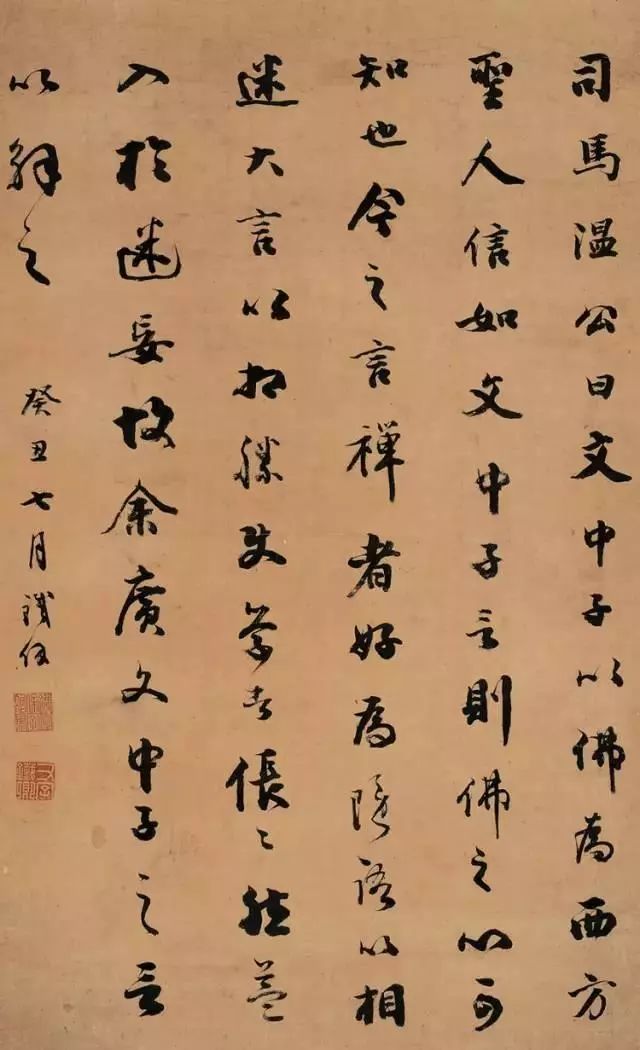 司馬温公曰文中子以佛為西方
聖人信如文中子言則佛之心可
知也今之言禪者好為隱語以相
迷大言以相勝使學者倀々然益
入於迷妄故余廣文中子之言
以解之
癸丑七月鐵保